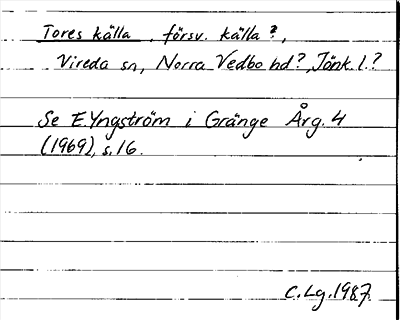 Tores källa, försv. källa?,
Vireda sn, Norra Vedbo hd?, Jönk. l.?
Se E. Yngström i Gränge Årg. 4
(1969), s. 16.
C. Lg. 1987.